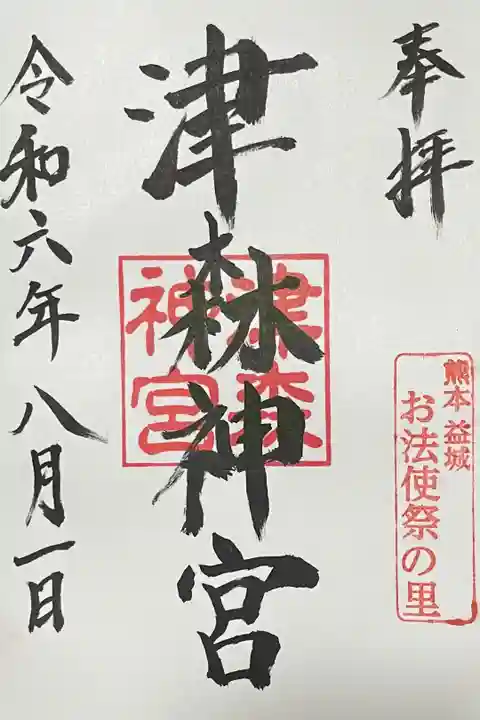 奉拝
熊本益城
お法使祭の里
津森神宮
津森
神宮
令和六年八月一日